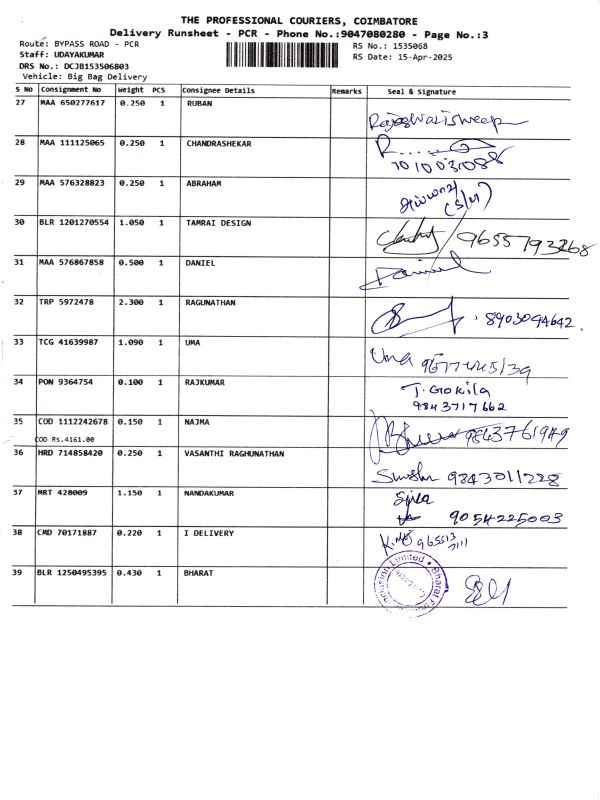 THE PROFESSIONAL COURIERS, COIMBATORE
Delivery Runsheet - PCR - Phone No.:9047080280 - Page No.:3
Route: BYPASS ROAD - PCR
RS No.: 1535068
Staff: UDAYAKUMAR
RS Date: 15-Apr-2025
DRS No.: DCJB153506803
Vehicle: Big Bag Delivery
S No Consignment No Weight PCS Consignee Details Remarks Seal & Signature
27 MAA 650277617 0.250 1 RUBAN
28 MAA 111125065 0.250 1 CHANDRASHEKAR
29 MAA 576328823 0.250 1 ABRAHAM
30 BLR 1201270554 1.050 1 TAMRAI DESIGN
31 MAA 576867858 0.500 1 DANIEL Daniel
32 TRP 5972478 2.300 1 RAGUNATHAN 8903094642.
33 TCG 41639987 1.090 1 UMA Uma
34 PON 9364754 0.100 1 RAJKUMAR T. Gokila
9843717662
35 COD 1112242678 0.150 1 NAJMA
COD Rs.4161.00
36 HRD 714858420 0.250 1 VASANTHI RAGHUNATHAN 9843011228
37 MRT 428009 1.150 1 NANDAKUMAR
9054225003
38 CMD 70171887 0.220 1 I DELIVERY
39 BLR 1250495395 0.430 1 BHARAT Limited Bharat